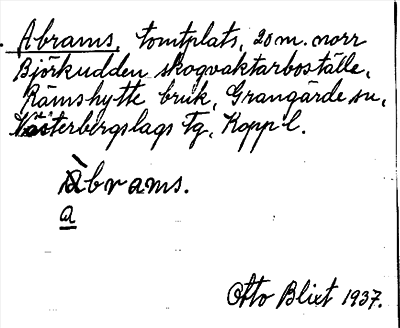 Abrams, tomtplats, 20 m. norr
Björkudden skogvaktarboställe,
Rämshytte bruk, Grangärde sn,
Västerbergslags Tg, Kopp l.
Àbrams.
a
Otto Blixt 1937.